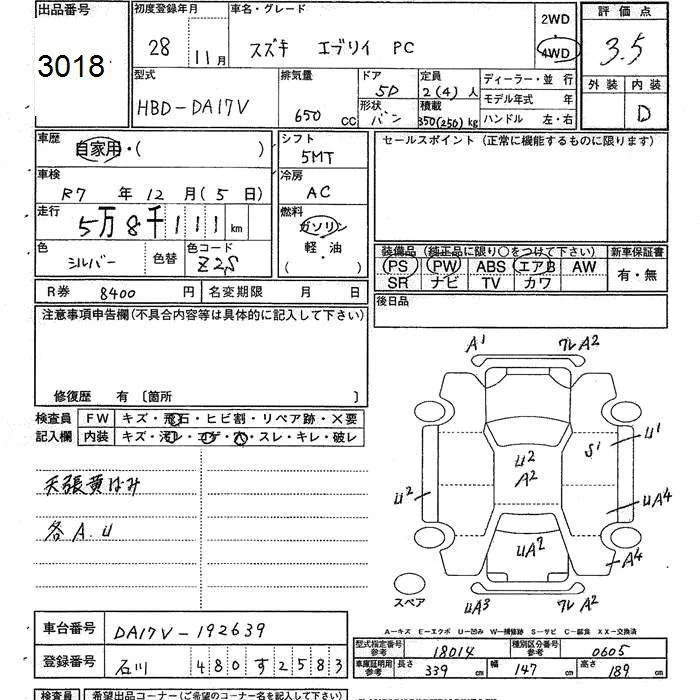 出品番号
3018
初度登録年月
28 11月
車名・グレード
スズキ エブリイ PC
2WD
・
4WD
評価点
3.5
外装 内装
D
型式
HBD-DA17V
排気量
650 CC
ドア
5D
形状
バン
定員
2(4)人
積載
350(250)kg
ディーラー・並行
モデル年式 年
ハンドル 左・右
車歴
自家用・( )
車検
R7年12月(5日)
走行
5万8千111km
色
シルバー
色替
色コード
Z2S
シフト
5MT
冷房
AC
燃料
ガソリン
軽・油
( )
セールスポイント(正常に機能するものに限ります)
装備品(純正品に限り○をつけて下さい)
PS PW ABS エアB AW
SR ナビ TV カワ
新車保証書
有・無
R券 8400円
名変期限 月 日
後日品
注意事項申告欄(不具合内容等は具体的に記入して下さい)
修復歴 有〔箇所 〕
検査員
記入欄
FW キズ・飛石・ヒビ割・リペア跡・X要
内装 キズ・汚レ・コゲ・穴・スレ・キレ・破レ
天張黄ばみ
各A.U
A1
ワレA2
U2
A2
S1
U1
U2
UA4
UA2
A4
スペア
UA3
ワレA2
A-キズ E-エクボ U-凹み W-補修跡 S-サビ C-腐食 XX-交換済
車台番号
DA17V-192639
登録番号
石川 480 す 2583
型式指定番号
参考
18014
種別区分番号
参考
0605
車庫証明用
参考
長さ
339 cm
幅
147 cm
高さ
189 cm
検査員
希望出品コーナー(ご希望のコーナー名を記入下さい)